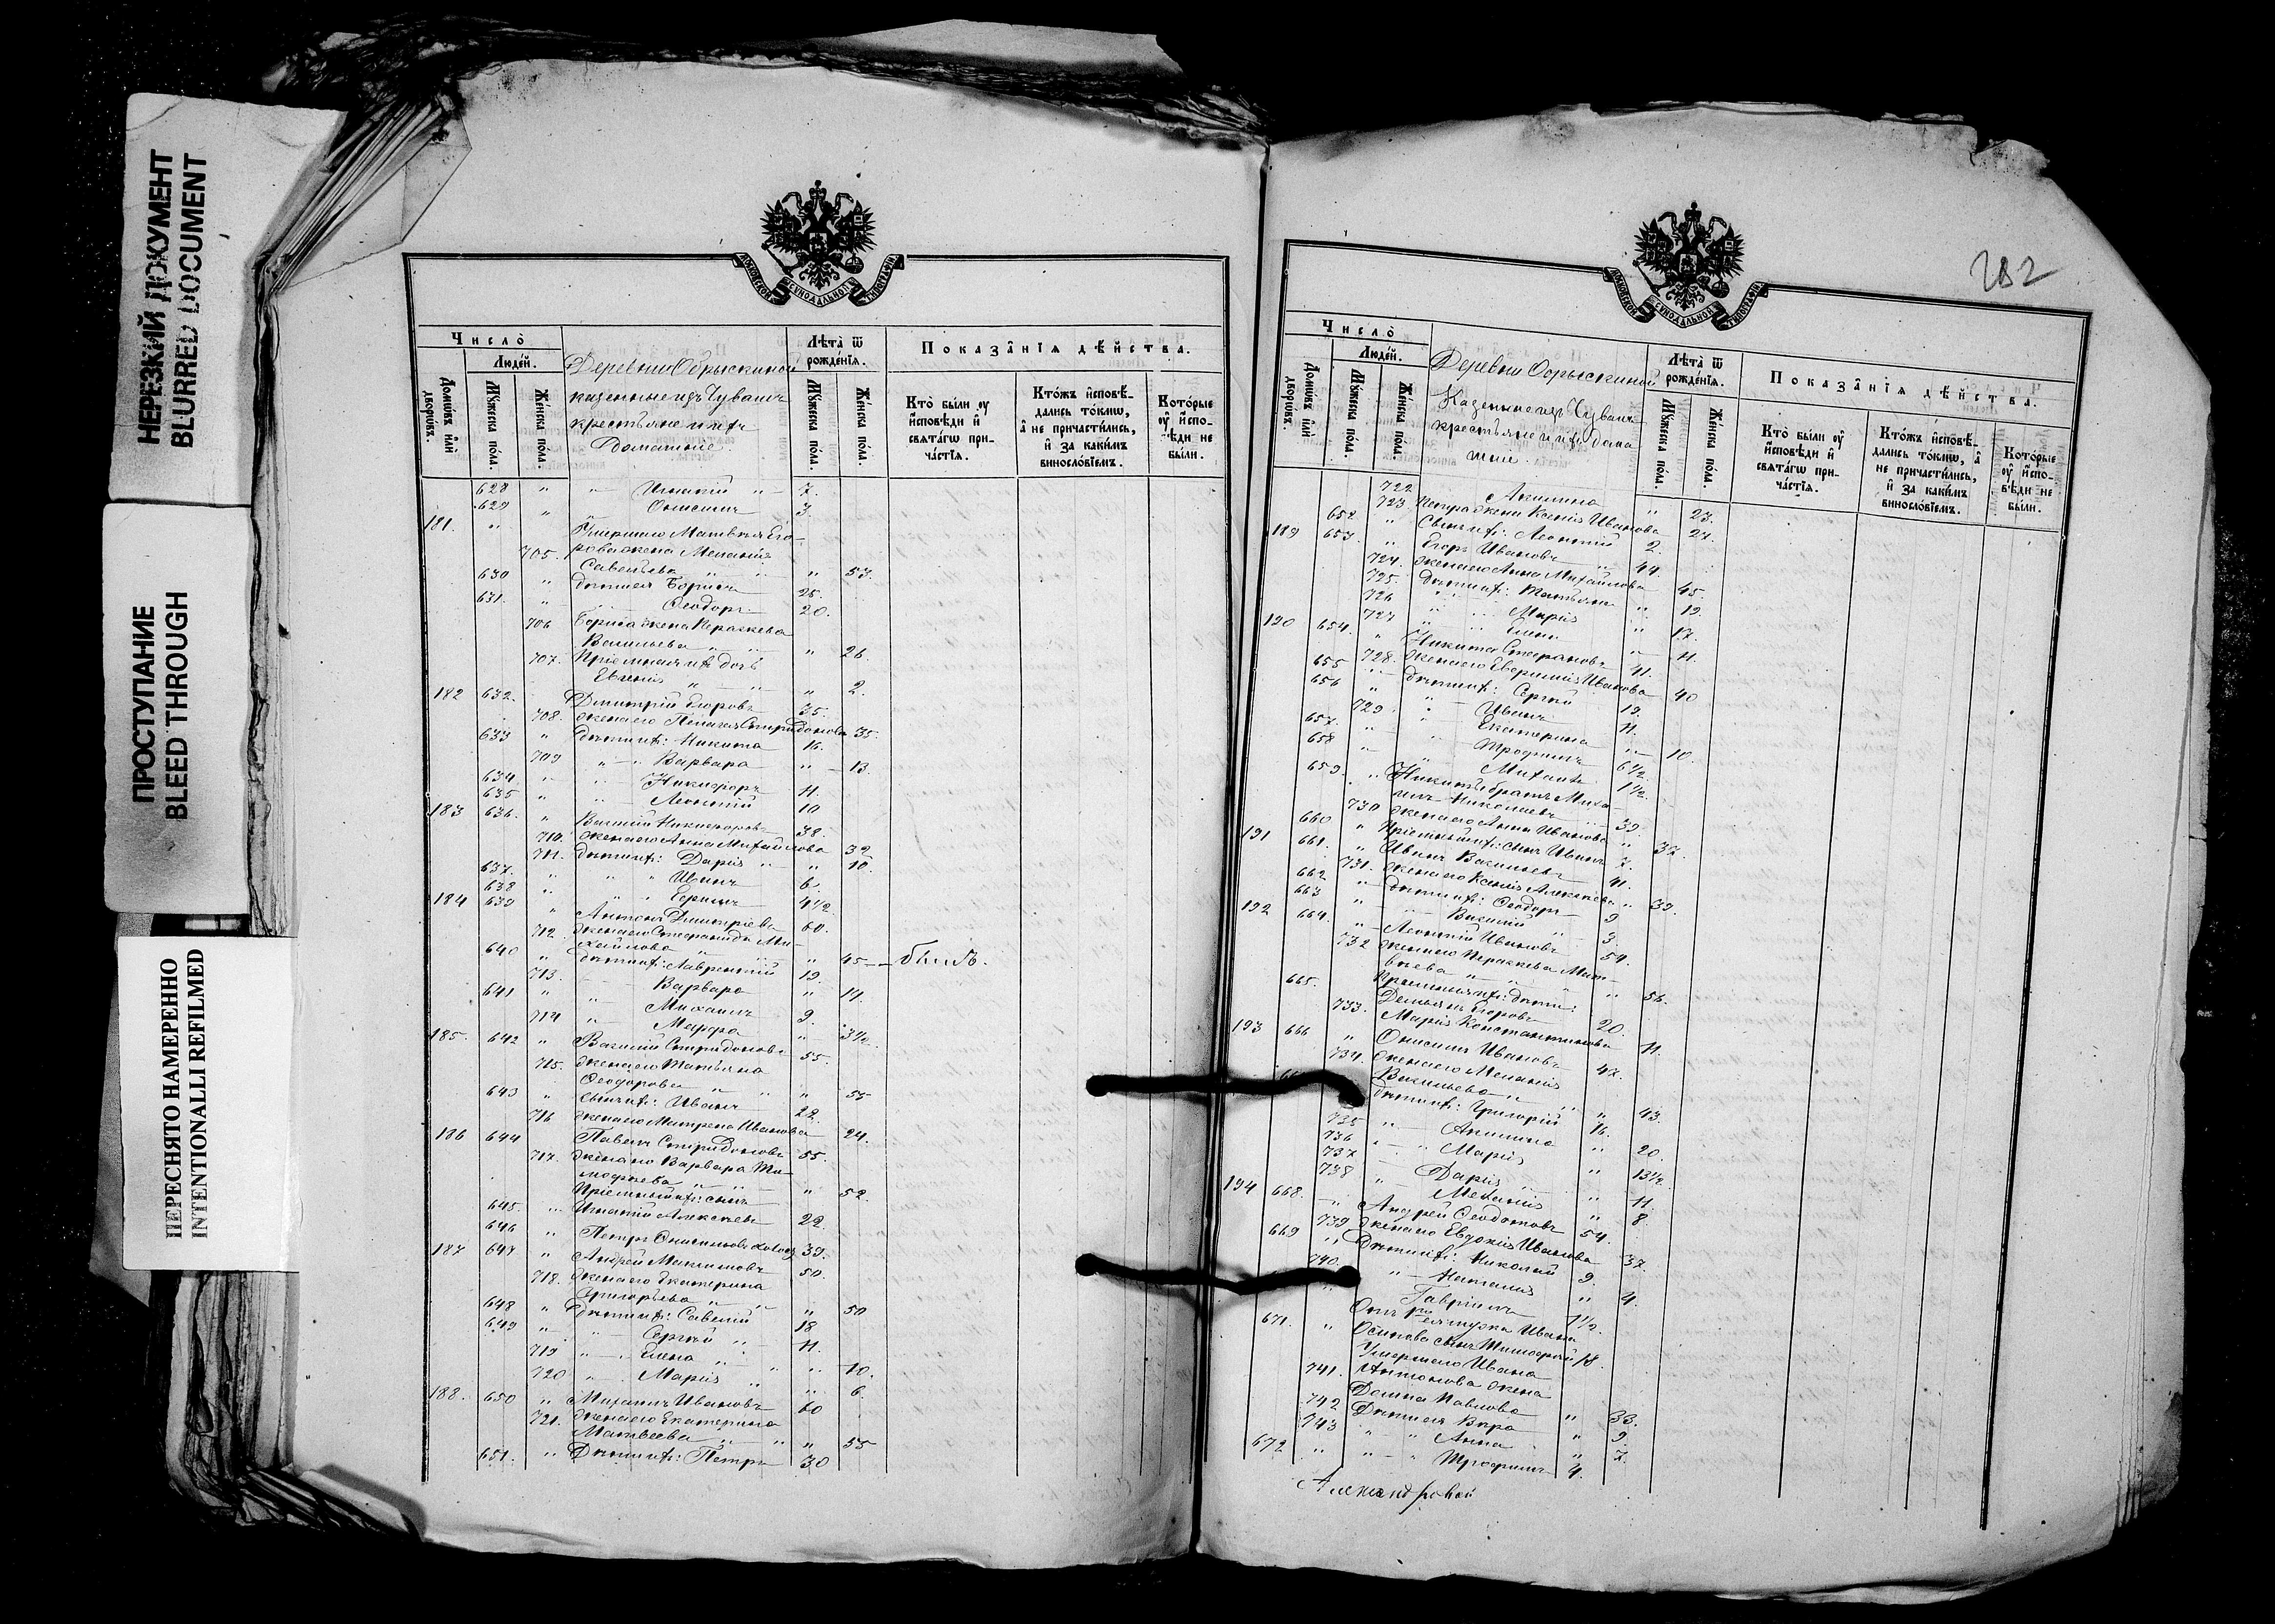 НЕРЕЗКИЙ ДОКУМЕНТ
BLURRED DOCUMENT
ПРОСТУПАНИЕ
BLEED THROUGH
ПЕРЕСНЯТО НАМЕРЕННО
INTENTIONALLI REFILMED
МОСКОВСКОЙ СѴНОДАЛЬНОЙ ТИПОГРАФІИ
Число̀
Людей.
Домѡвъ илѝ дворовъ.
Мꙋжеска пола.
Женска пола.
Деревни Обрыскиной
казенные изъ Чувашъ
крестьяне и ихъ
Домашние.
Лѣта̀ ѿ рожденїѧ.
Мꙋжеска пола.
Женска пола.
Показанїѧ дѣйства.
Кто̀ были ѹ҆ и҆сповѣди и҆ свѧтагѡ причастїѧ.
Ктожъ и҆сповѣдались токмѡ, а҆ не причастились, и҆ за какимъ винословїемъ.
Которые ѹ҆ и҆сповѣди не были.
628 " " Игнатій " 7.
629 " Онисимъ 3.
181. " Умершаго Матвѣя Его-
705. рова жена Меланія
Савельева " " 53.
630 " Дѣти ея Борисъ 25.
631. " " Ѳеодоръ 20.
706 Бориса жена Параскева
Васильева " " 26.
707. Пріемная ихъ дочь
Евгенія " " 2.
182 632. Димитрій Егоровъ 35.
708. жена его Пелагея Спиридонова 35.
633 " Дѣти ихъ: Никита 16.
709 " " Варвара " 13.
634. " " Никифоръ 11.
635 " " Леонтій 10
183 636. " Василій Никифоровъ 38.
710. жена его Анна Михайлова 32
711. Дѣти ихъ: Дарія " " 10.
637. " " " Иванъ 6.
638 " " Герасимъ 4½
184 639 " Антонъ Дмитріевъ 60.
712. жена его Степанида Ми-
хайлова " " 45 — быль.
640 " Дѣти ихъ: Лаврентій 19.
713. Варвара " 14.
641 " " Михаилъ 9.
714 " Марфа " 3½
185. 642 " Василій Спиридоновъ 55.
715. жена его Татьяна
Ѳеодорова " " 55
643 " Сынъ ихъ: Иванъ 22.
716 жена его Матрена Иванова 24.
186 644 Павелъ Спиридоновъ 55.
717. жена его Варвара Ти-
мофѣева " " 52.
Пріемный ихъ сынъ
645. " Игнатій Алексѣевъ 22.
646 " Петръ Онисимовъ холост 39.
187 647 " Андрей Максимовъ 50.
718. жена его Екатерина
Григорьева " " 50
648 " Дѣти ихъ: Савелій 18
649 " " Сергѣй " 11.
719 " " Елена " " 10.
720 " Марія " " 6.
188. 650 " Михаилъ Ивановъ 60
721. жена его Екатерина
Матвеева " " " 55
651. " Дѣти ихъ: Петръ 30
282
МОСКОВСКОЙ СѴНОДАЛЬНОЙ ТИПОГРАФІИ
Число̀
Людей.
Домѡвъ илѝ дворовъ.
Мꙋжеска пола.
Женска пола.
Деревни Обрыскиной
Казенные изъ Чувашъ
крестьяне и ихъ дома
шніе.
Лѣта̀ ѿ рожденїѧ.
Мꙋжеска пола.
Женска пола.
Показанїѧ дѣйства.
Кто̀ были ѹ҆ и҆сповѣди и҆ свѧтагѡ причастїѧ.
Ктожъ и҆сповѣдались токмѡ, а҆ не причастились, и҆ за какимъ винословїемъ.
Которые ѹ҆ и҆сповѣди не были.
722 Акилина " 23.
723 Петра жена Ксенія Иванова 27.
652. " Сынъ ихъ: Леонтій 2.
189 653. " Егоръ Ивановъ 44.
724. жена его Анна Михайлова 45.
725. Дѣти ихъ: Татьяна " 19.
726 " " Марія " 17.
727 " " Елена " 11.
190 654. " Никита Степановъ 41.
728. жена его Евфимія Иванова 40
655 " Дѣти ихъ: Сергѣй 19.
656 " " Иванъ 11.
729 " Екатерина " 10.
657. " " Трофимъ 6½.
658 " " Михаилъ 1½.
659. " Никиты братъ Миха-
илъ Николаевъ 39.
730 жена его Анна Иванова " 37.
660 " Пріемный ихъ сынъ Иванъ 7.
191 661. " Иванъ Васильевъ 41.
731. жена его Ксенія Алексѣева " 39.
662 " Дѣти ихъ: Ѳеодоръ 9
663 " " Василій " 3.
192 664. " Леонтій Ивановъ 54.
732 жена его Параскева Мат-
вѣева " " 56.
Пріемныя ихъ дѣти:
665. Демьянъ Егоровъ 20.
733. Марія Константинова 11.
193 666 " Онисимъ Ивановъ 47.
734. жена его Меланія
Васильева " " 43.
Дѣти ихъ: Григорій 16.
735 " Акилина " 20.
736 " " Марія " 13½.
737 " Дарія " 11.
738 " Меланія " 8.
194 668. " Андрей Ѳеодотовъ 54.
739 жена его Евдокія Иванова 37.
669 " Дѣти ихъ: Николай 9.
740. " Наталія " 4.
" Гавріилъ 1½.
Ивана
671. " Осипова сынъ Тимофей 18.
Умершаго Ивана
741. Антонова жена
Домна Павлова " 33.
742 Дѣти ея Вѣра " 9.
743 " " Анна " 7.
672 " " " Трофимъ 4.